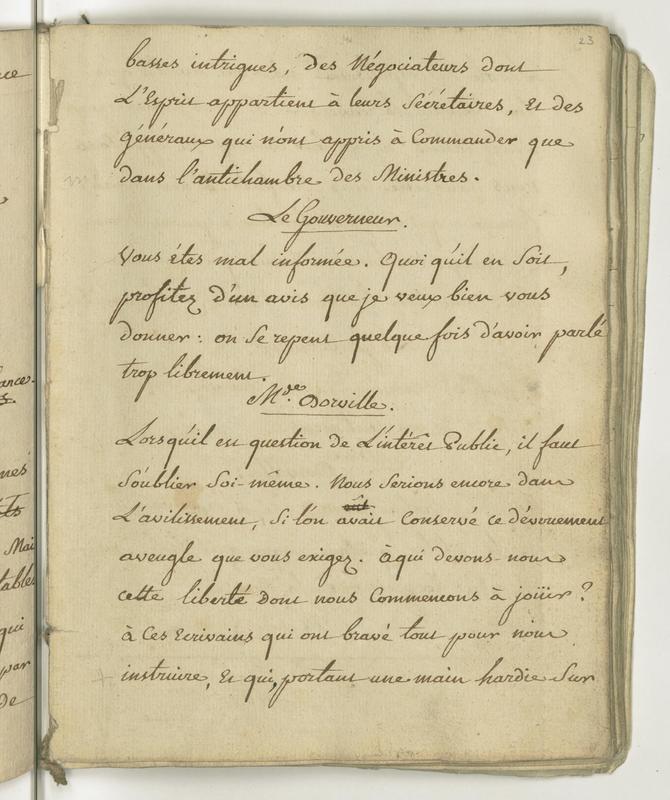 23
basses intrigues, des Négociateurs dont
L'Esprit appartient à leurs Sécrétaires, Et des
généraux qui n'ont appris à Commander que
dans l'antichambre des Ministres.
Le Gouverneur.
Vous étes mal informée. Quoi qu'il en Soit,
profitez d'un avis que je veux bien vous
donner : on Se repent quelque fois d'avoir parlé
trop librement.
Mde. Dorville.
Lorsqu'il est question de L'intérêt Public, il faut
S'oublier Soi-même. Nous Serions encore dans
L'avilissement, Si l'on avait Conservé ce dévouement
aveugle que vous exigez. à qui devons-nous
cette liberté Dont nous Commencons à joüir ?
à Ces Ecrivains qui ont bravé tout pour nous
instruire, Et qui, portant une main hardie Sur